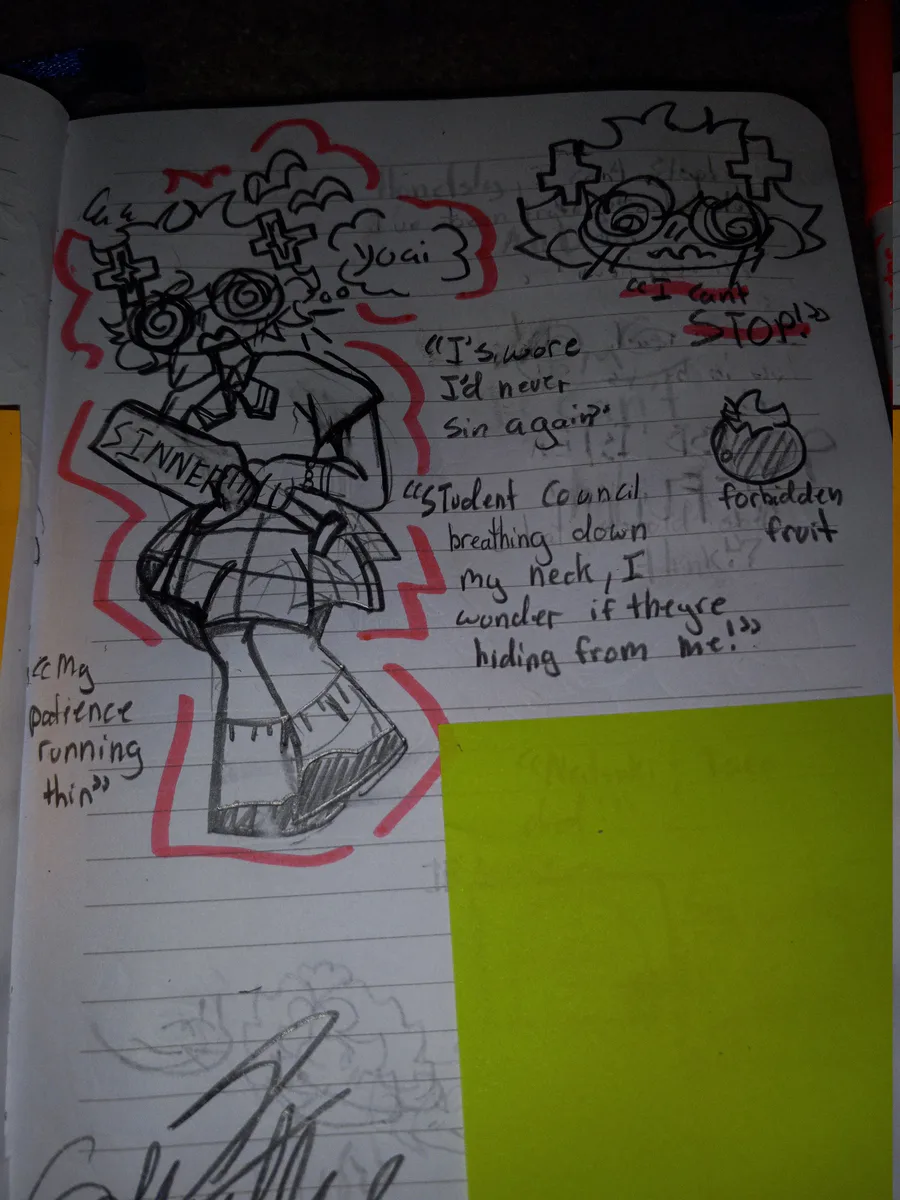 yoai
"I cant
STOP!"
"I swore
I'd never
sin again"
SINNER
forbidden
fruit
"Student Council
breathing down
my neck, I
wonder if theyre
hiding from me!"
"My
patience
running
thin"